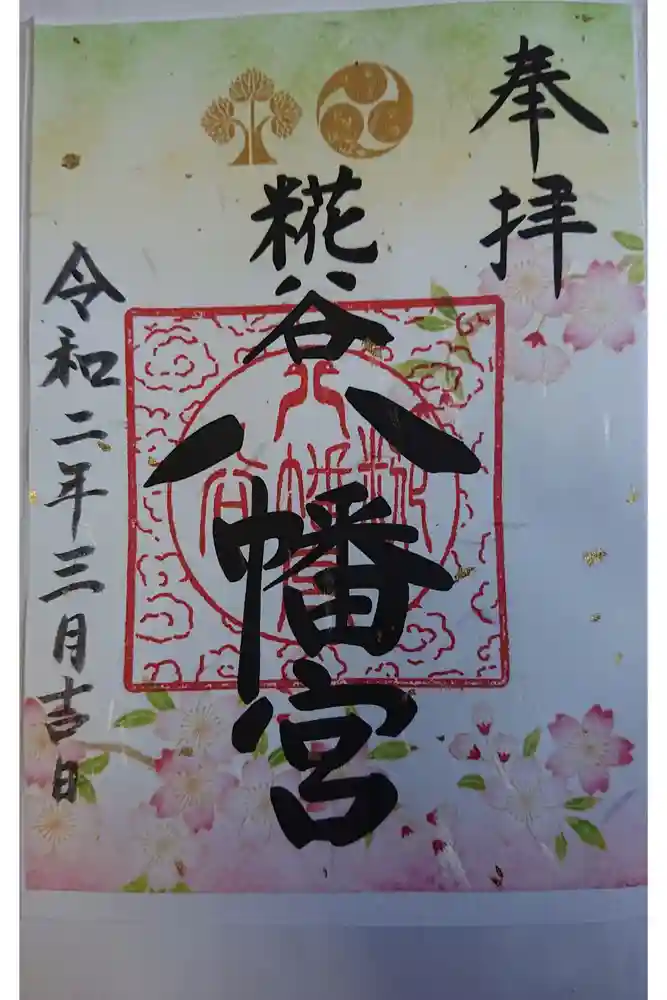 奉拝
糀谷八幡宮
令和二年三月吉日